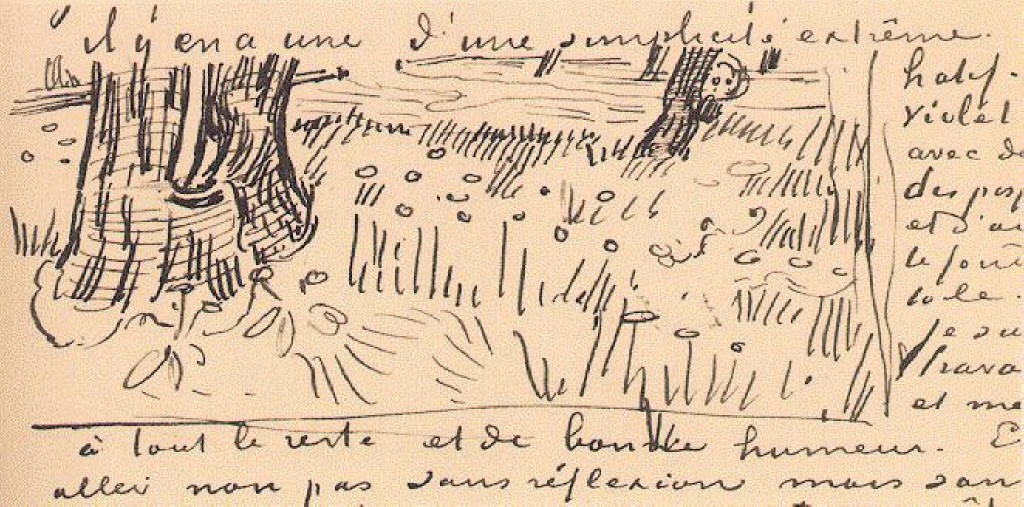 il y en a une d'une simplicité extrême.
violet
avec de
et d'au
Je su
Trava
et me
à tout le reste et de bonne humeur. E
aller non pas sans réflexion mais san